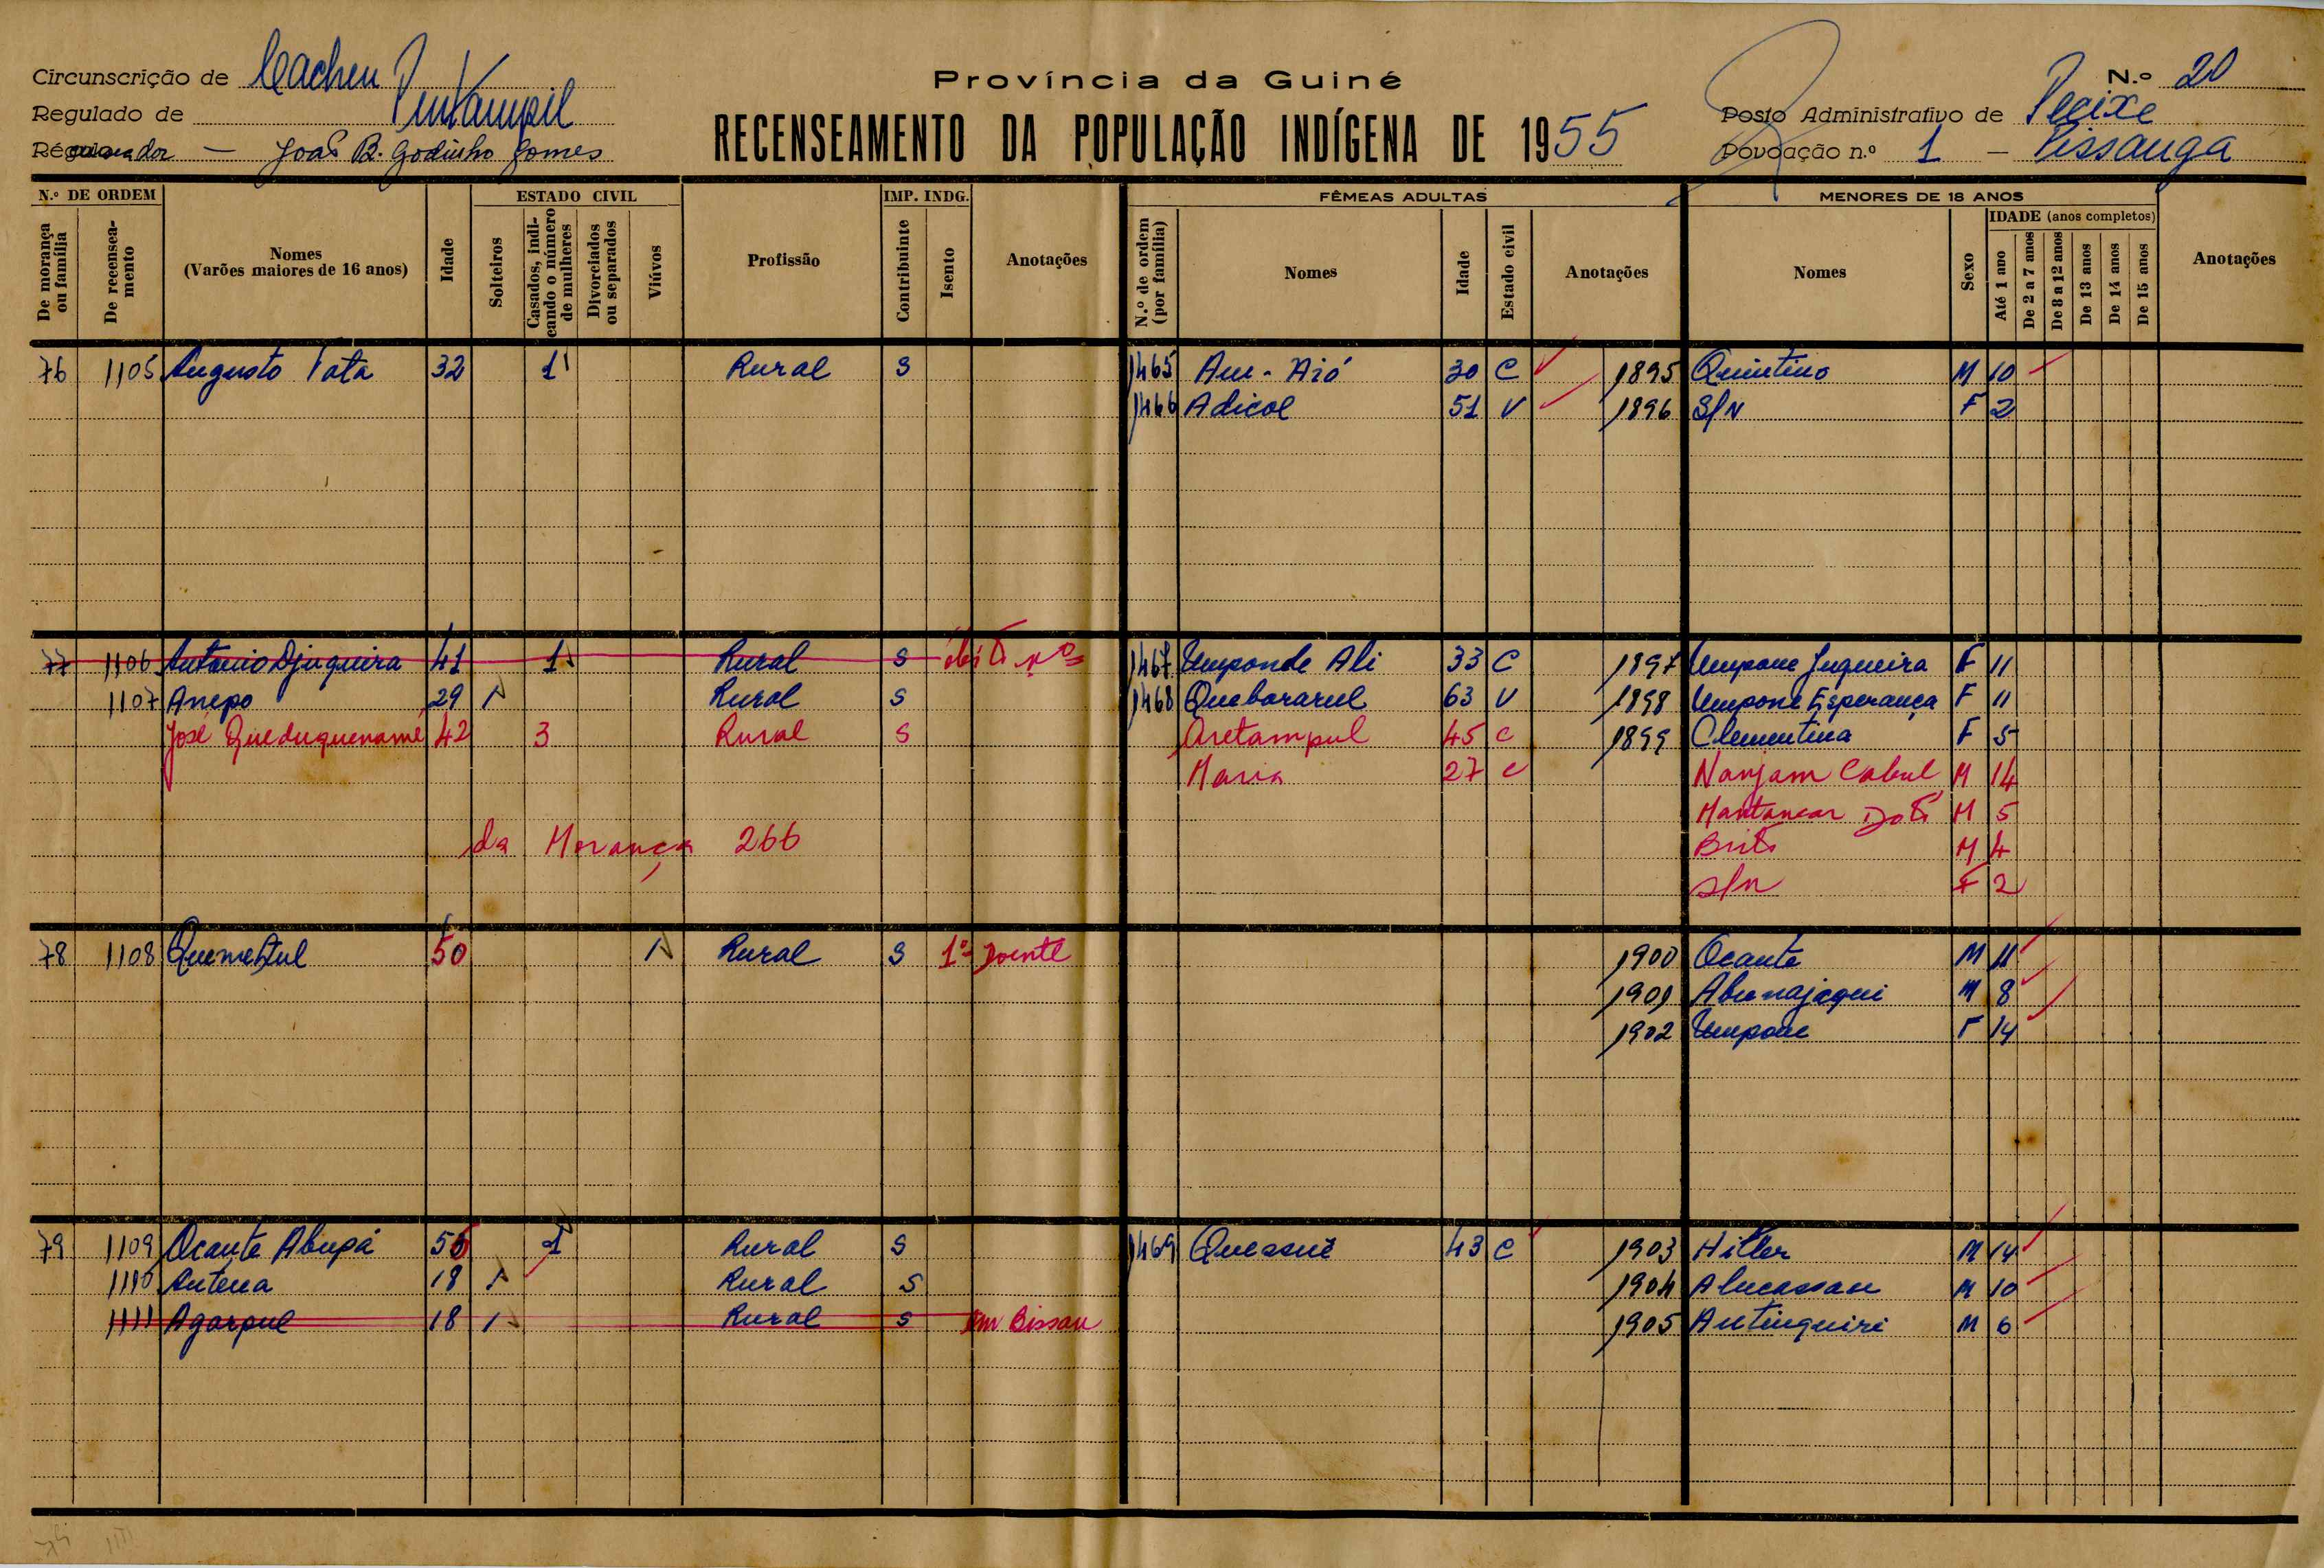 Circunscrição de Cacheu
Regulado de Pintampil
Régulo — João B. Godinho Gomes
Província da Guiné
RECENSEAMENTO DA POPULAÇÃO INDÍGENA DE 1955
N.º 20
Posto Administrativo de Pecixe
Povoação n.º 1 — Pissanga
N.º DE ORDEM
De morança ou família
De recenseamento
Nomes
(Varões maiores de 16 anos)
Idade
ESTADO CIVIL
Solteiros
Casados, indicando o número de mulheres
Divorciados ou separados
Viúvos
Profissão
IMP. INDG.
Contribuinte
Isento
Anotações
FÊMEAS ADULTAS
N.º de ordem (por família)
Nomes
Idade
Estado civil
Anotações
MENORES DE 18 ANOS
Nomes
Sexo
IDADE (anos completos)
Até 1 ano
De 2 a 7 anos
De 8 a 12 anos
De 13 anos
De 14 anos
De 15 anos
Anotações
76 1105 Augusto Tata 32 1 Rural S 1465 Au - Aió 30 C 1895 Quintino M 10
1466 Adicol 51 V 1896 S/N F 2
77 1106 Antonio Djuqueira 41 1 Rural S óbito nº 1467 Umponde Ali 33 C 1897 Umpone Juqueira F 11
1107 Anepo 29 1 Rural S 1468 Quebararul 63 V 1898 Umpone Esperança F 11
José 42 3 Rural S Aretampul 45 C 1899 Clementina F 5
Maria 27 C Nanjam Cabul M 14
Mantancar M 5
da Morança 266 Brito M 4
s/n F 2
78 1108 Quemetul 50 1 Rural S 1º Doente 1900 Ocante M 11
1901 Abunajaqui M 8
1902 Umpone F 14
79 1109 Ocante Abupá 55 1 Rural S 1469 Quessuè 43 C 1903 Hitler M 14
1110 Antena 18 1 Rural S 1904 Alucassau M 10
1111 Agarpul 18 1 Rural S em Bissau 1905 Autinquiri M 6